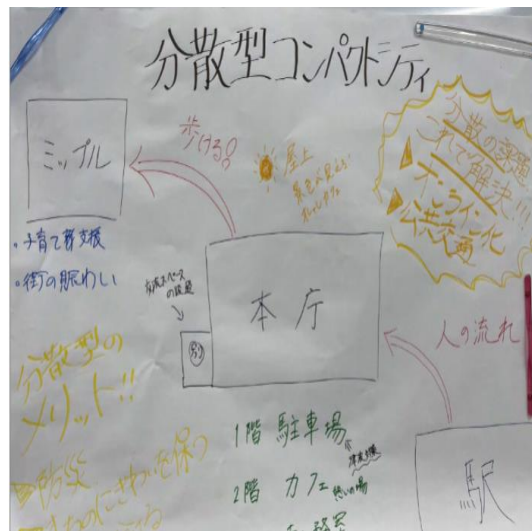 分散型コンパクトシティ
ミップル
歩ける!
屋上
景色が見える
分散の課題
これで解決!!
オンライン化
公共交通
・子育て等支援
・街の賑わい
交流スペース
の設置
本庁
人の流れ
駅
分散型の
メリット!!
防災
まちのにぎわいを保つ
1階 駐車場
2階 カフェ 憩いの場